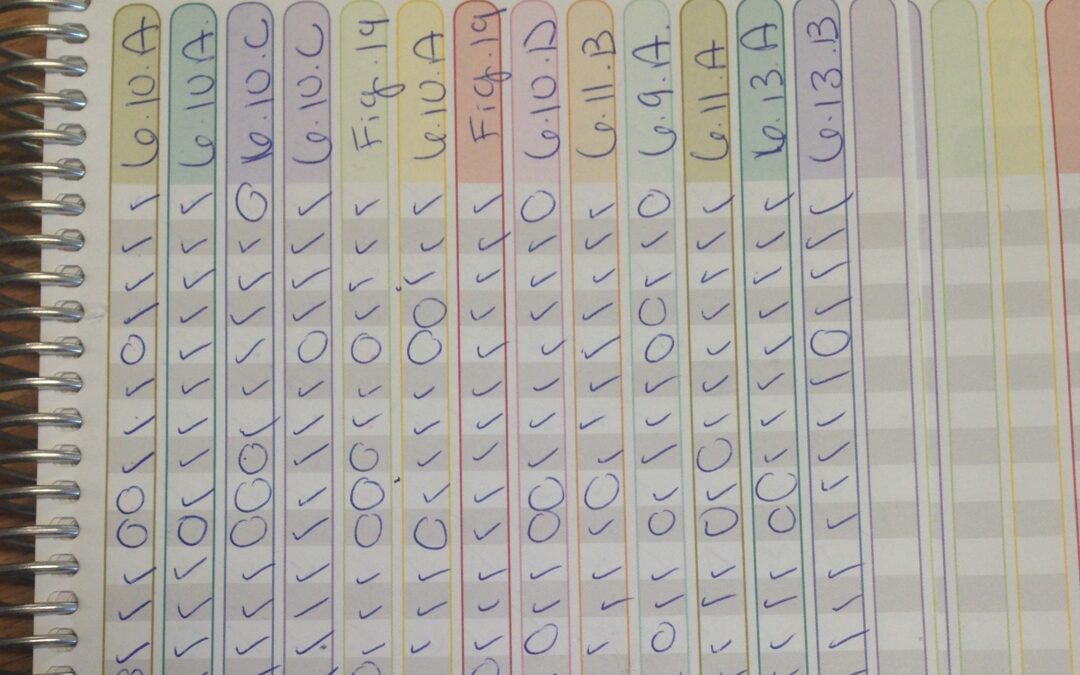 6.10.A
6.10A
6.10.C
6.10.C
Fig.19
6.10.A
Fig.19
6.10.D
6.11.B
6.9.A.
6.11.A
6.13.A
6.13.B